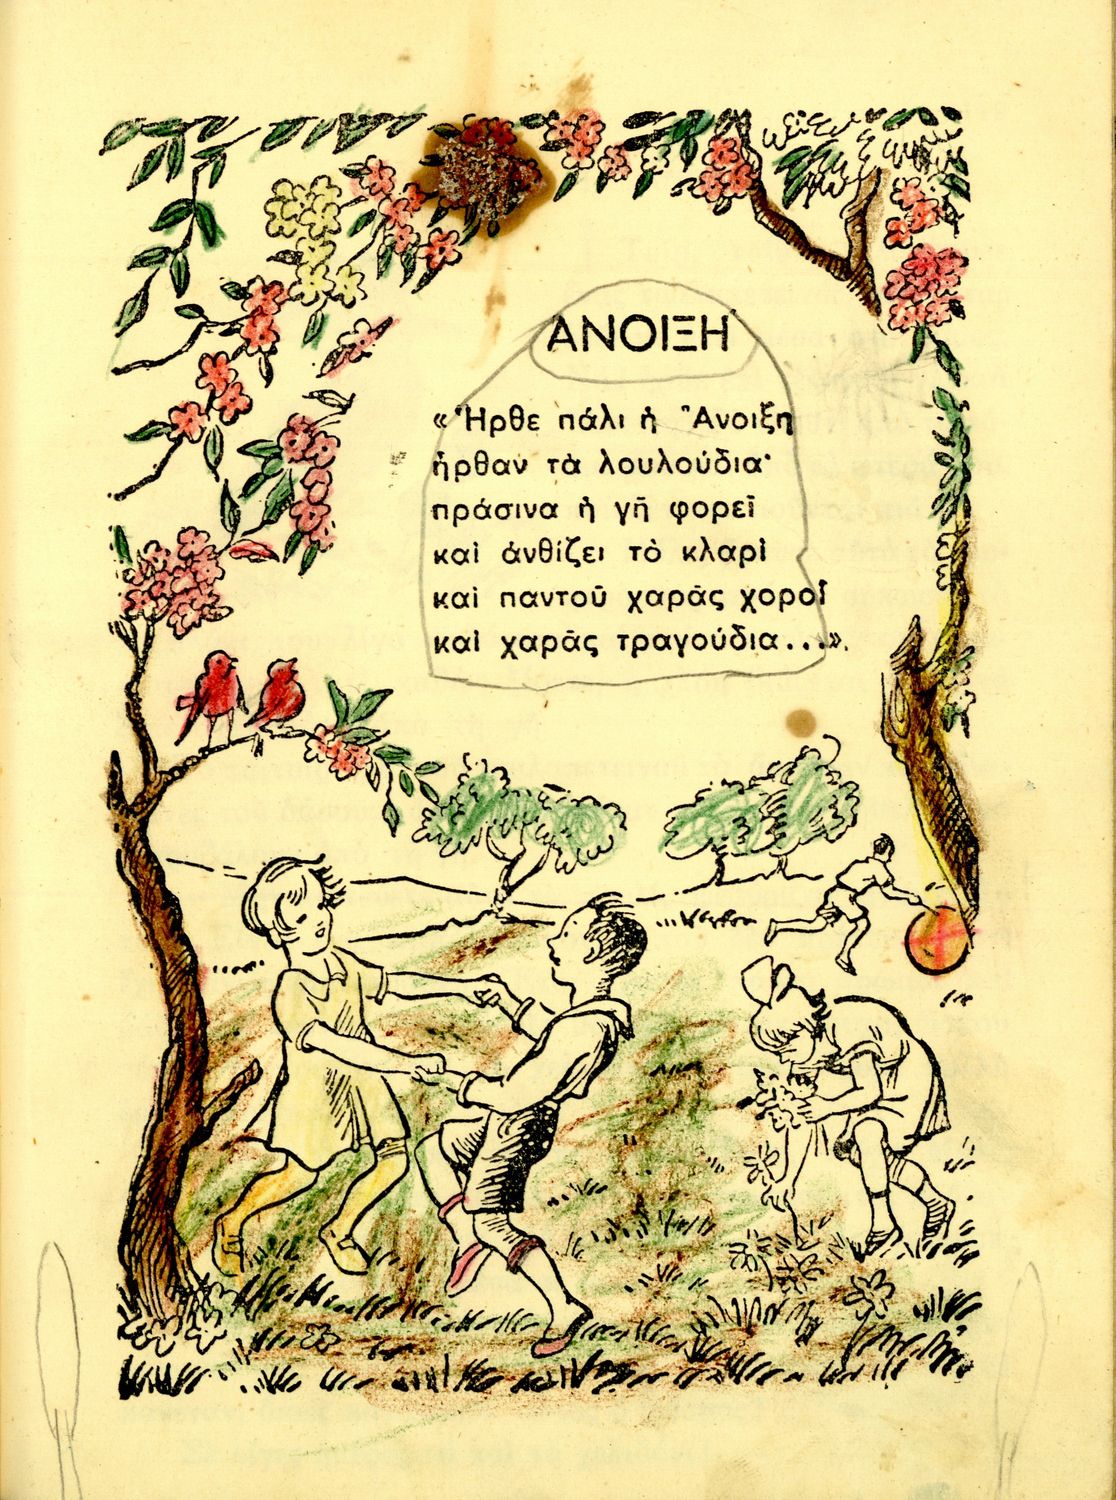 ΑΝΟΙΞΗ
«Ἦρθε πάλι ἡ Ἄνοιξη
ἦρθαν τὰ λουλούδια·
πράσινα ἡ γῆ φορεῖ
καὶ ἀνθίζει τὸ κλαρὶ
καὶ παντοῦ χαρᾶς χοροὶ
καὶ χαρᾶς τραγούδια...».